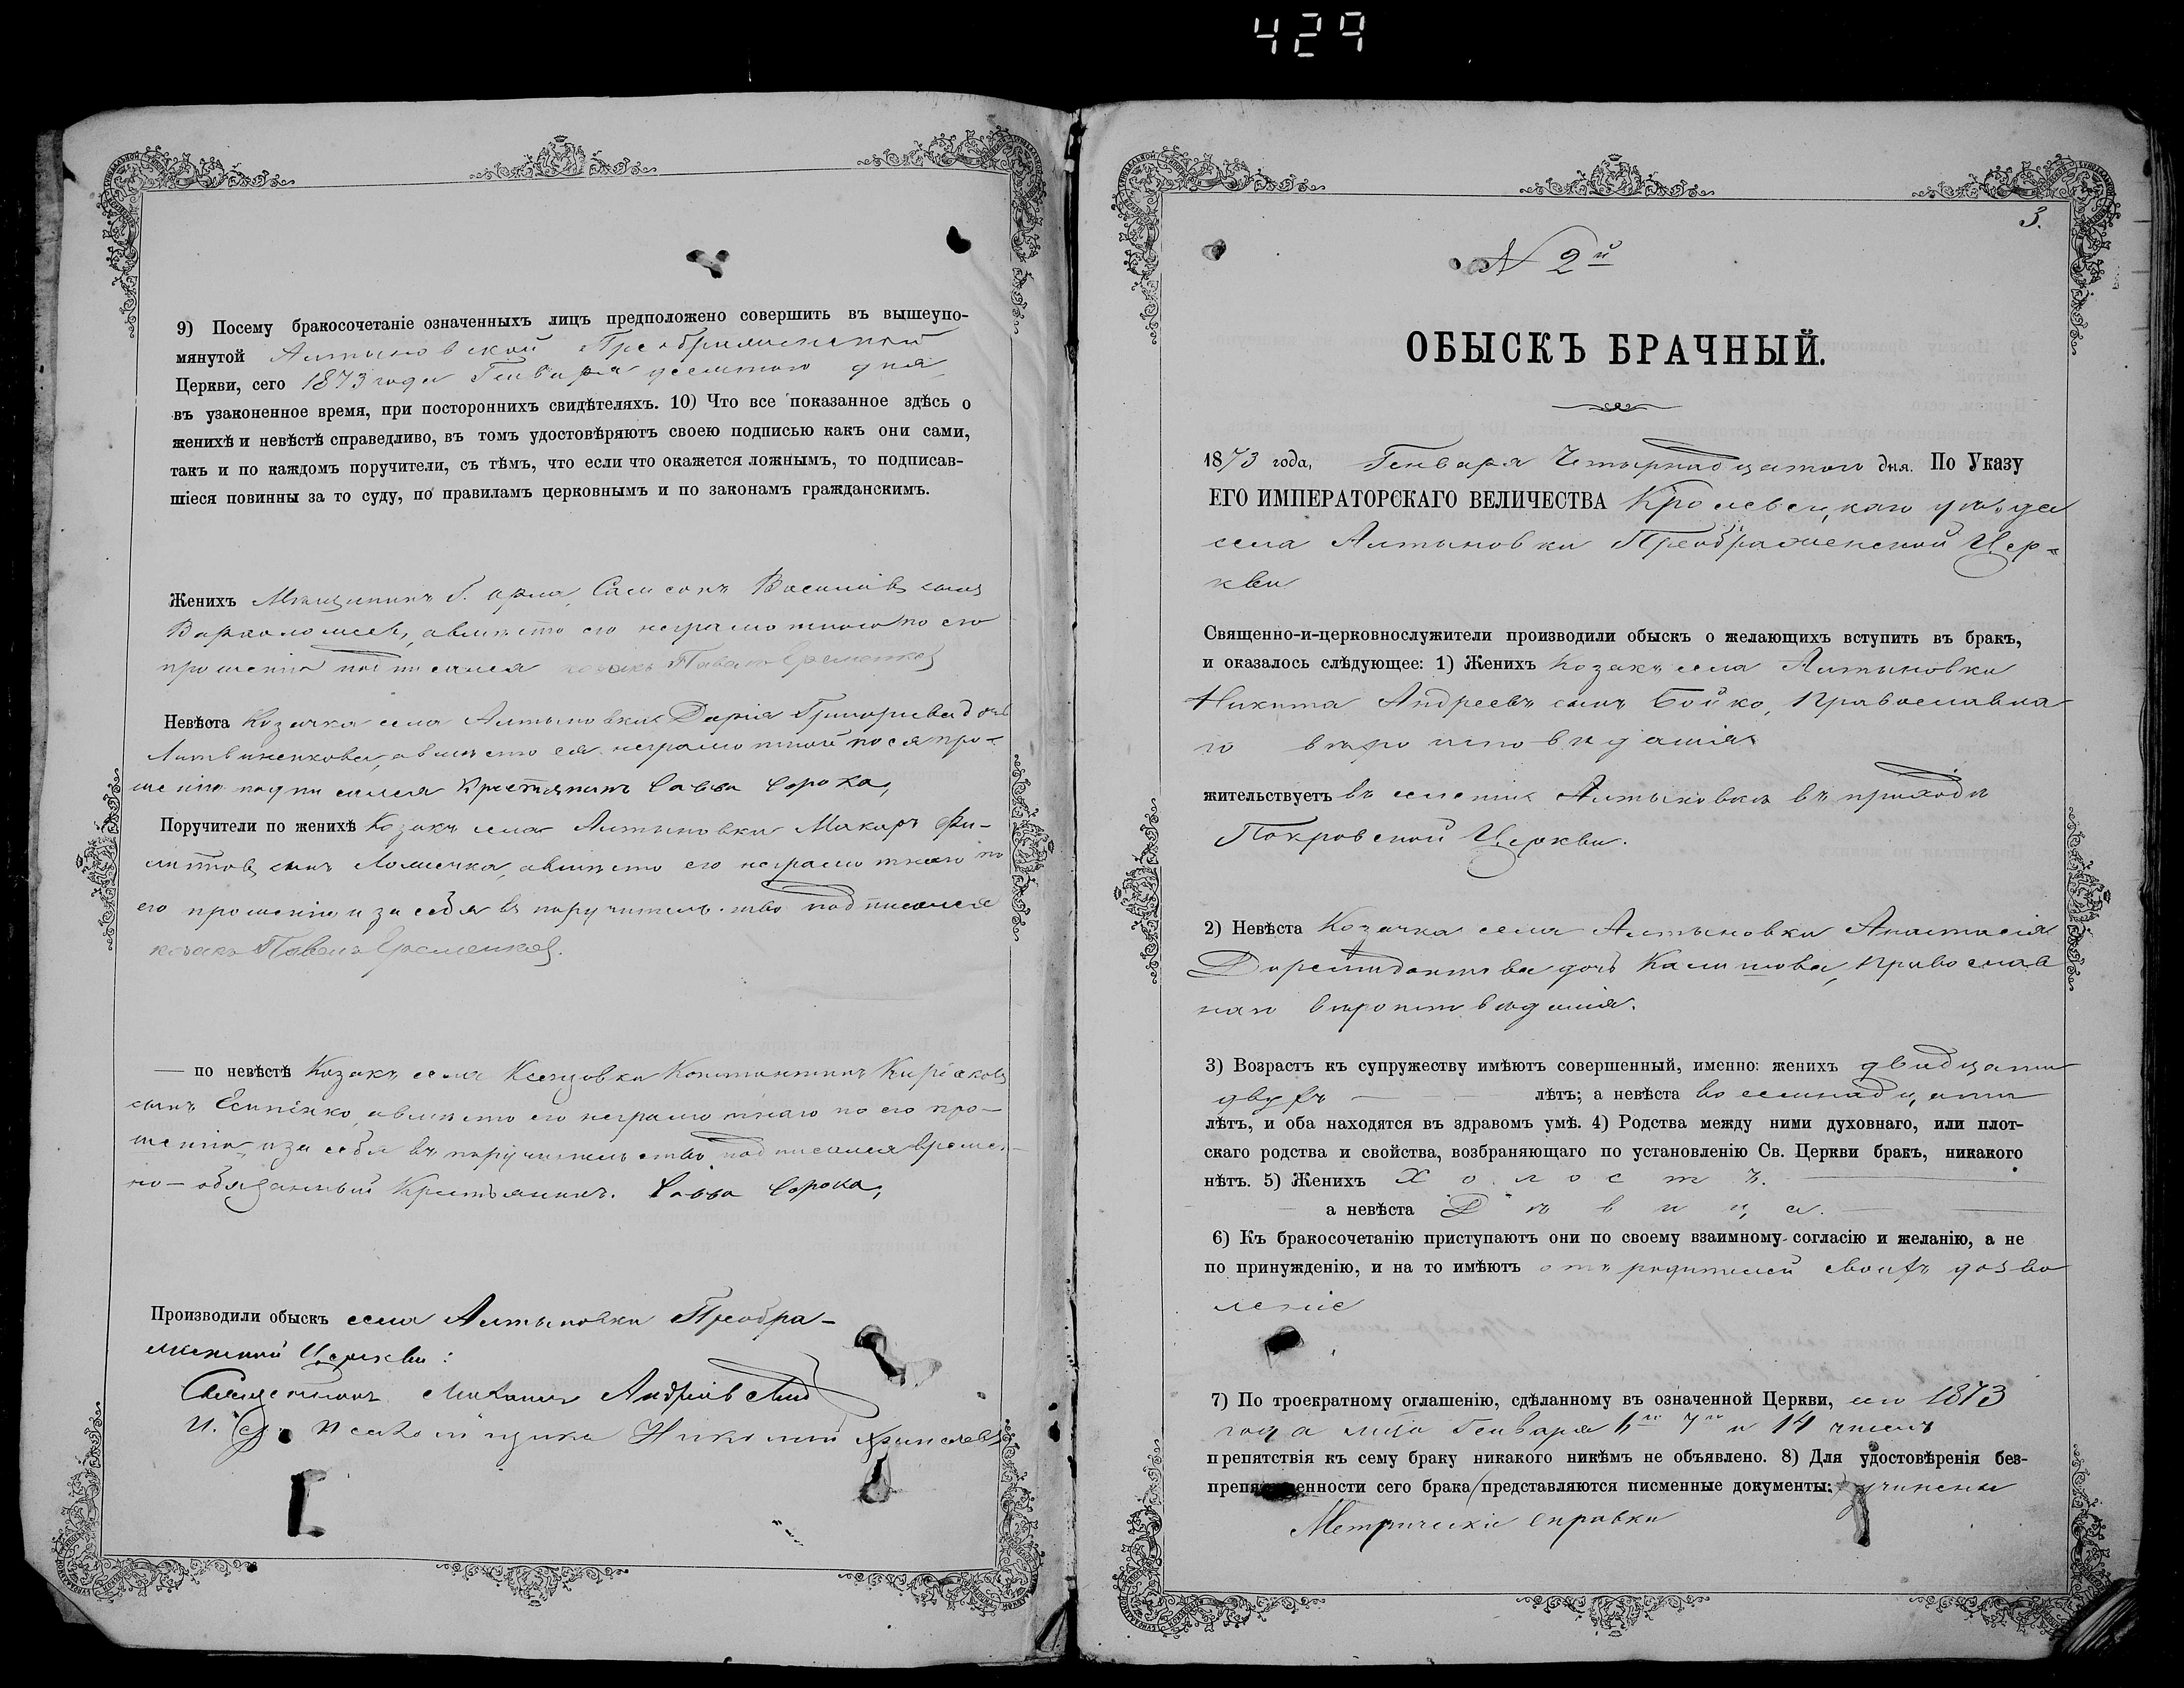 429
9) Посему бракосочетаніе означенныхъ лицъ предположено совершить въ вышеупо-
мянутой Алтыновской Преображенской
Церкви, сего 1873 года Генваря десятого дня
въ узаконенное время, при постороннихъ свидѣтеляхъ. 10) Что все показанное здѣсь о
женихѣ и невѣстѣ справедливо, въ томъ удостовѣряютъ своею подписью какъ они сами,
такъ и по каждомъ поручители, съ тѣмъ, что если что окажется ложнымъ, то подписав-
шіеся повинны за то суду, по правиламъ церковнымъ и по законамъ гражданскимъ.
Женихъ Мѣщанинъ г. Орла Самсонъ Василіевъ сынъ
Варфоломеевъ, авмѣсто его неграмотного по его
прошенію подписался козакъ Павелъ
Невѣста Козачка села Алтыновки Дарія Григориева дочь
Литвиненкова, авмѣсто ея неграмотной по ея про-
шенію подписался Крестянинъ Савва Сорока,
Поручители по женихѣ Козакъ села Алтыновки Макаръ Фи-
липповъ сынъ Ломечка, авмѣсто его неграмотнаго по
его прошенію и за себя въ поручительство подписался
козакъ Павелъ
— по невѣстѣ Козакъ села Константинъ Киріаковъ
сынъ Есипенко, авмѣсто его неграмотнаго по его про-
шенію, и за себя въ поручительство подписался времен-
но-обязанный Крестьянинъ. Савва Сорока,
Производили обыскъ села Алтыновки Преобра-
женской Церкви:
Священникъ Михаилъ Андріевскій
И. д. псаломщика Николай
3.
N 2й
ОБЫСКЪ БРАЧНЫЙ.
1873 года, Генваря Четырнадцатого дня. По Указу
ЕГО ИМПЕРАТОРСКАГО ВЕЛИЧЕСТВА Кролевецкаго уѣзда
села Алтыновки Преображенской Цер-
кви
Священно-и-церковнослужители производили обыскъ о желающихъ вступить въ бракъ,
и оказалось слѣдующее: 1) Женихъ Козакъ села Алтыновки
Никита Андреевъ сынъ Бойко, Православна
го вѣроисповѣданія
жительствуетъ въ селеніи Алтыновкѣ въ приходѣ
Покровской Церкви.
2) Невѣста Козачка села Алтыновки Анастасія
дочь православ
наго вѣроисповѣданія.
3) Возрастъ къ супружеству имѣютъ совершенный, именно: женихъ двадцати
двухъ — лѣтъ; а невѣста восемнадцати
лѣтъ, и оба находятся въ здравомъ умѣ. 4) Родства между ними духовнаго, или плот-
скаго родства и свойства, возбраняющаго по установленію Св. Церкви бракъ, никакого
нѣтъ. 5) Женихъ Холостъ.
а невѣста Дѣвица.
6) Къ бракосочетанію приступаютъ они по своему взаимному согласію и желанію, а не
по принужденію, и на то имѣютъ отъ родителей своихъ дозво
леніе
7) По троекратному оглашенію, сдѣланному въ означенной Церкви, сего 1873
года Генваря 6го 7го и 14 чиселъ
препятствія къ сему браку никакого никѣмъ не объявлено. 8) Для удостовѣренія без-
препятственности сего брака представляются писменные документы: учинены
Метрическіе справки